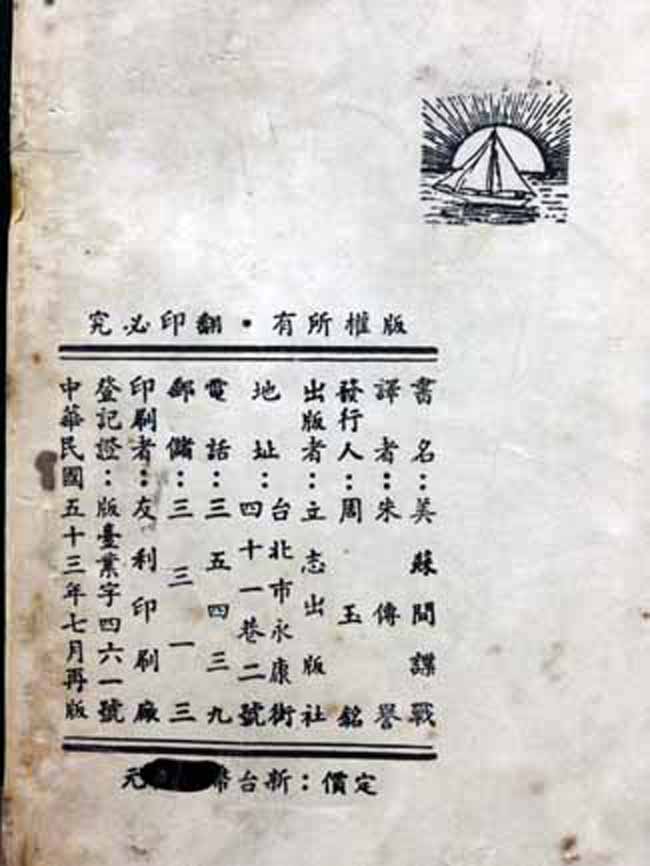 版權所有・翻印必究
書名：美蘇間諜戰
譯者：朱傳譽
發行人：周玉銘
出版者：立志出版社
地址：台北市永康街
四十一巷二號
電話：三五四三九
郵儲：三三一三
印刷者：友利印刷廠
登記證：版臺業字四六一號
中華民國五十三年七月再版
定價：新台幣元